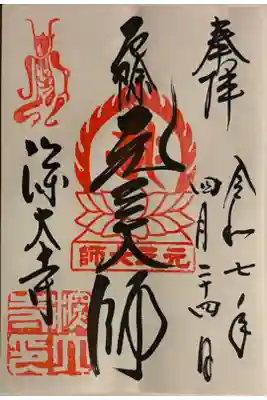 奉拝
令和七年
四月二十四日
元三大師
元三大師
深大寺